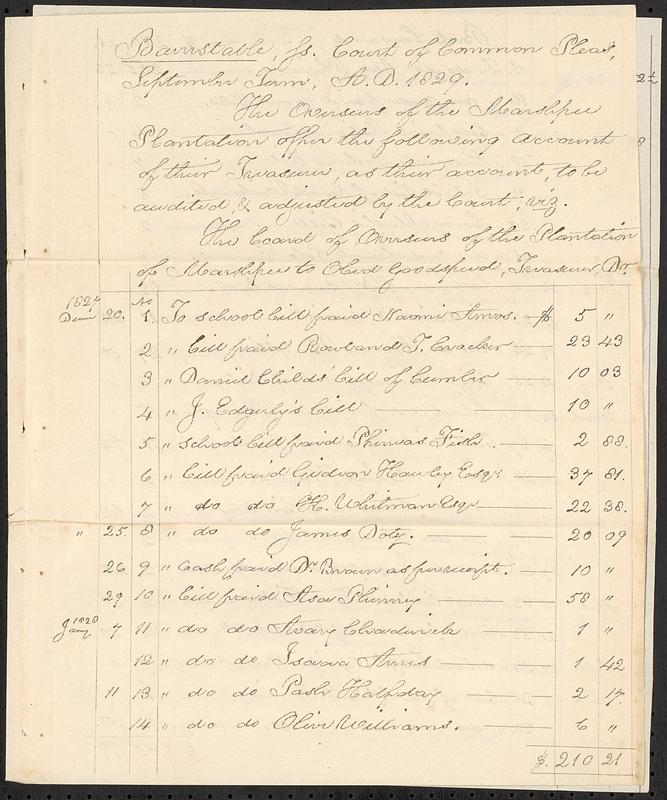 Barnstable, ss. Court of Common Pleas,
September Term, A.D. 1829.
The Overseers of the Marshpee
Plantation offer the following account
of their Treasurer, as their account, to be
audited, & adjusted by the Court; viz.
The board of Overseers of the Plantation
of Marshpee to Obed Goodspeed, Treasurer, Dr.
1827 No
Decem 20. 1. To school bill paid Naomi Amos. $ 5 "
2 " bill paid Rowland T. Crocker 23 43
3 " Daniel Childs' bill of lumber 10 03
4 " J. Edgerly's bill 10 "
5 " school bill paid Phineas Fish 2 88.
6 " bill paid Gideon Hawley Esqr 37 81.
7 " do do K. Whitman Esqr 22 38.
" 25. 8 " do do James Doty. 20 09
26 9 " Cash paid Dr. Brown as per receipt. 10 "
29 10 " bill paid Asa Phinney 58 "
1828
Jany. 7 11 " do do Avary Chadwick 1 "
12 " do do Isaac Ames 1 42
11 13 " do do Pash Halfday 2 17.
14 " do do Olive Williams. 6 "
$. 210 21